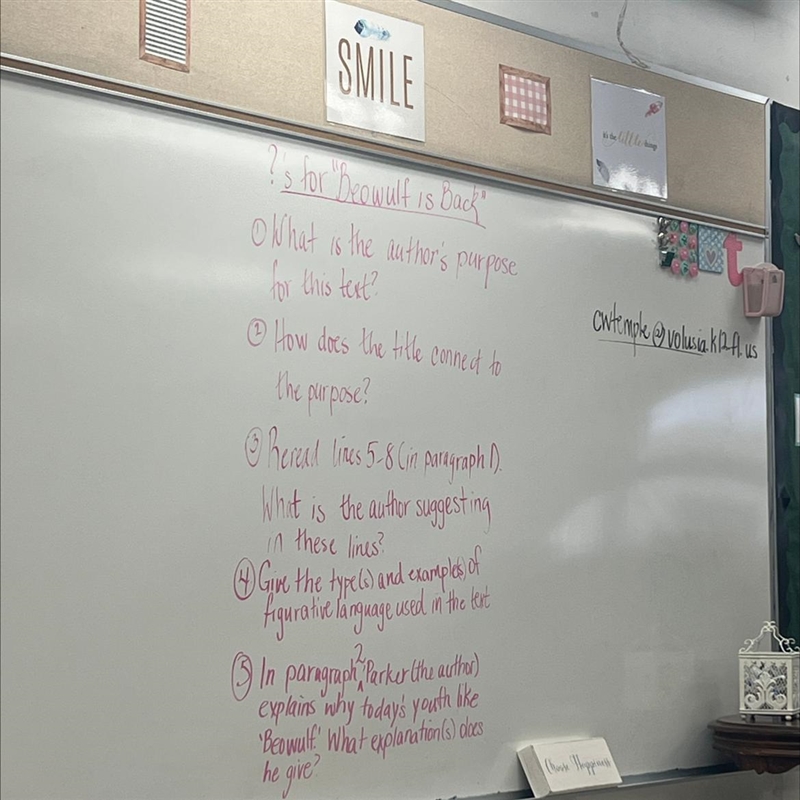 SMILE
it's the little things
?'s for "Beowulf is Back"
① What is the author's purpose
for this text?
② How does the title connect to
the purpose?
③ Reread lines 5-8 (in paragraph 1).
What is the author suggesting
in these lines?
④ Give the type(s) and example(s) of
figurative language used in the text
⑤ In paragraph 2, Parker (the author)
explains why today's youth like
'Beowulf.' What explanation(s) does
he give?
t
cwtemple@volusia.k12.fl.us
Choose Happiness